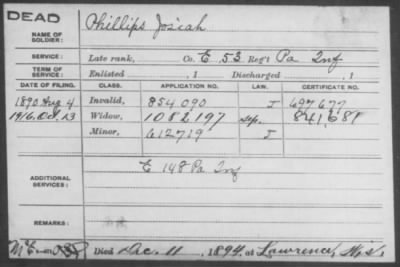 DEAD
NAME OF SOLDIER: Phillips Josiah
SERVICE: Late rank, Co. E 53 Reg't Pa Inf
TERM OF SERVICE: Enlisted , 1 Discharged , 1
DATE OF FILING. CLASS. APPLICATION NO. LAW. CERTIFICATE NO.
1890 Aug 4 Invalid, 854,090 J 697,677
1916 Oct 13 Widow, 1082,197 Sep. 841,681
Minor, 612,719 J
ADDITIONAL SERVICES: E 148 Pa Inf
REMARKS:
Died Dec. 11, 1894, at Lawrence, Wis.